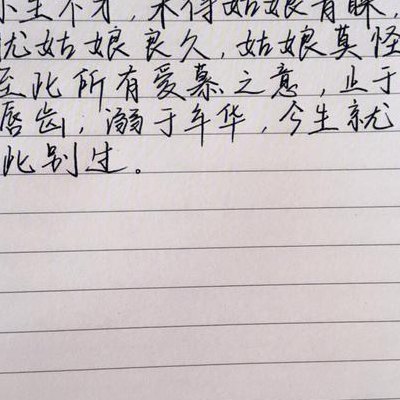 小生不才,未得姑娘青睐,
扰姑娘良久,姑娘莫怪
至此所有爱慕之意,止于
唇齿,溺于年华,今生就
此别过。